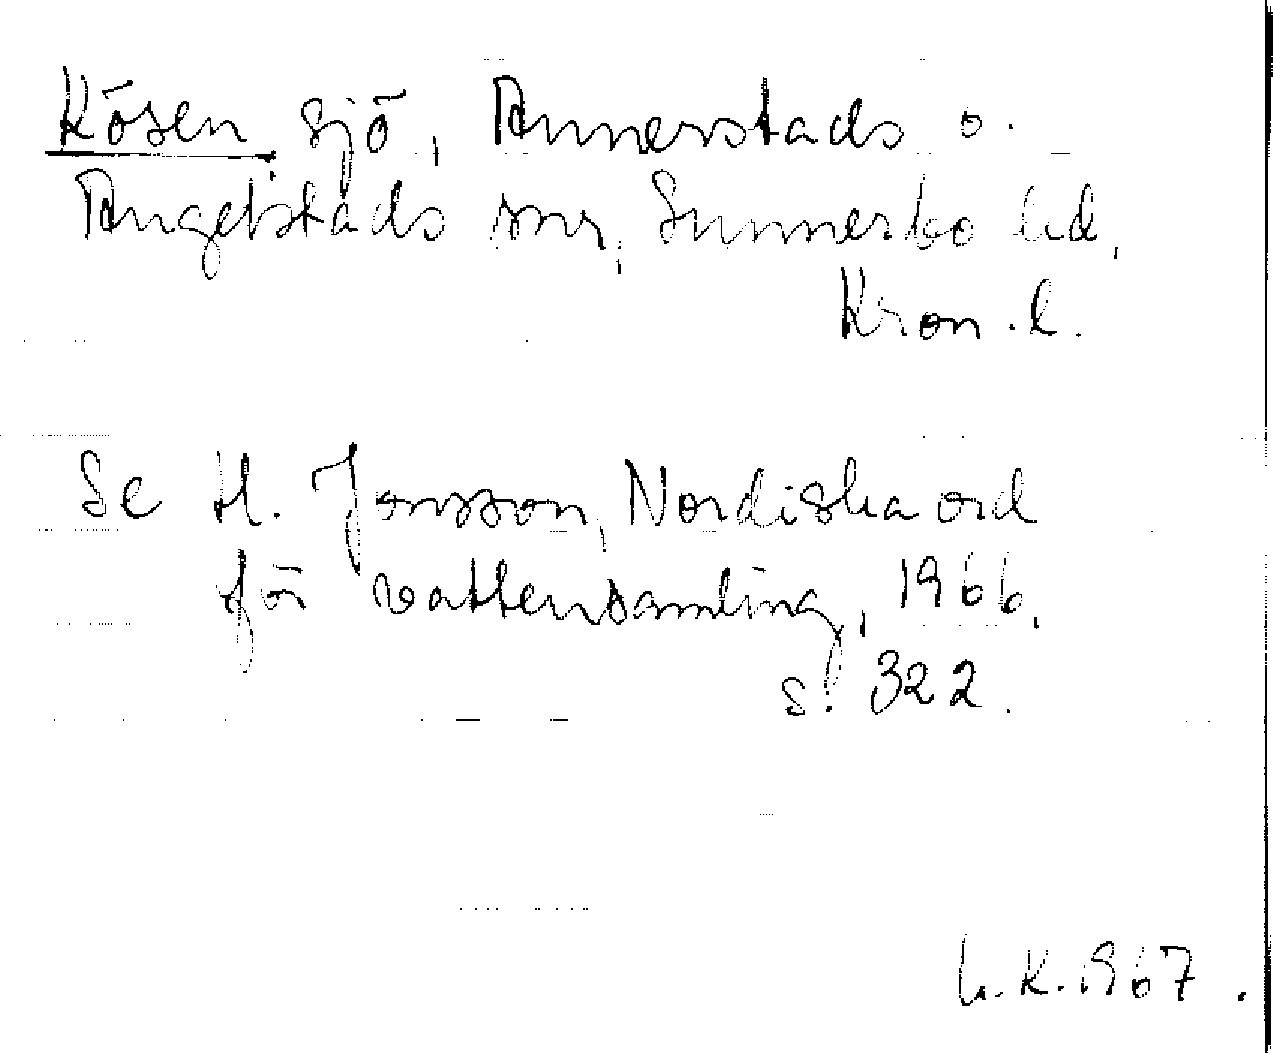 Kösen sjö, Annerstads o.
Angelstads snr, Sunnerbo hd,
Kron. l.
Se H. Jonsson, Nordiska ord
för vattensamling, 1966,
s. 322.
L. K. 1967.